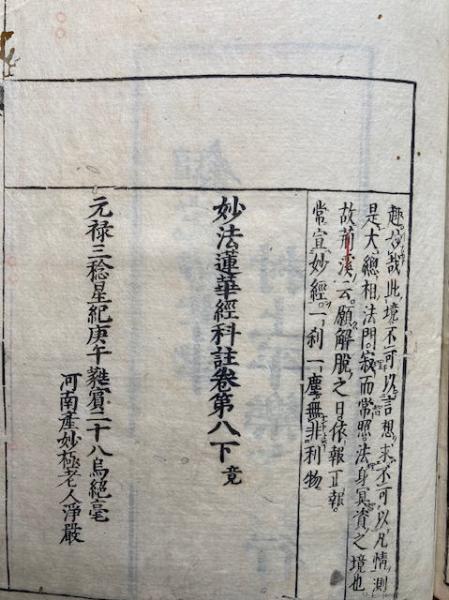 趣。妙哉此境不可以言想求不可以凡情測
是大總相法門。寂而常照。法身冥資之境也
故荊溪云。願解脫之日。依報正報。
常宣妙經。一刹一塵。無非利物
妙法蓮華經科註卷第八下 竟
元禄三稔星紀庚午蕤賓二十八烏絕毫
河南產妙極老人淨嚴